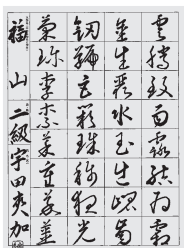 雲騰致雨露結為霜
金生麗水玉出崐岡
劔號巨闕珠稱夜光
菓珍李柰菜重芥薑
福山 二級 宇田爽加